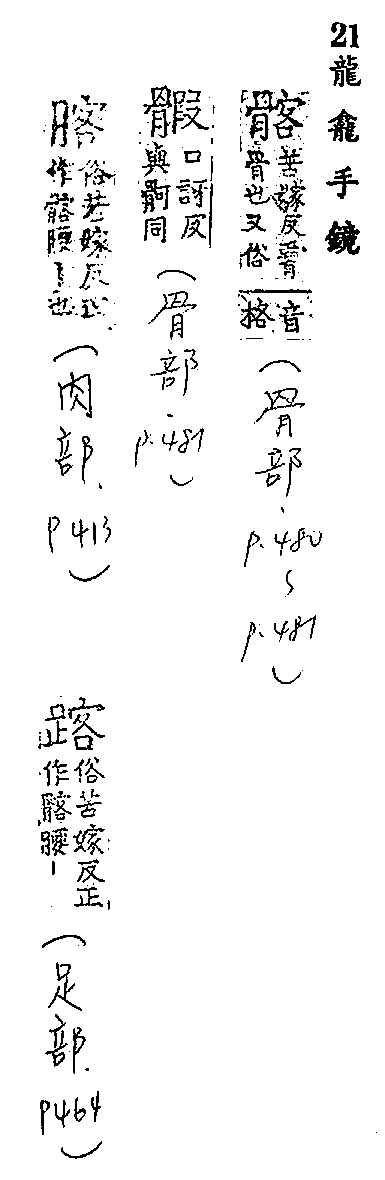 21龍龕手鏡
髂
苦嫁反
骨也又俗
音
格
（骨部、p.480〜p.481）
口訝反
與䯊同
（骨部、p.481）
俗苦嫁反正
作髂腰丨也
（肉部、p413）
俗苦嫁反正
作髂腰丨
（足部、p464）